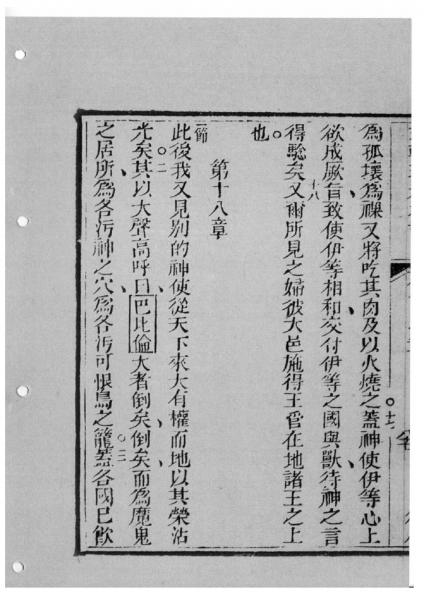 為孤壞為祼又將吃其肉及以火燒之蓋神使伊等心上
欲成厥旨致使伊等相和交付伊等之國與獸待神之言
得騐矣十八又爾所見之婦彼大邑施得王管在地諸王之上
也
第十八章
一節此後我又見別的神使從天下來大有權而地以其榮沾
光矣二其以大聲高呼曰巴比倫大者倒矣倒矣而為魔鬼
之居所為各污神之穴為各污可恨鳥之籠三蓋各國已飲